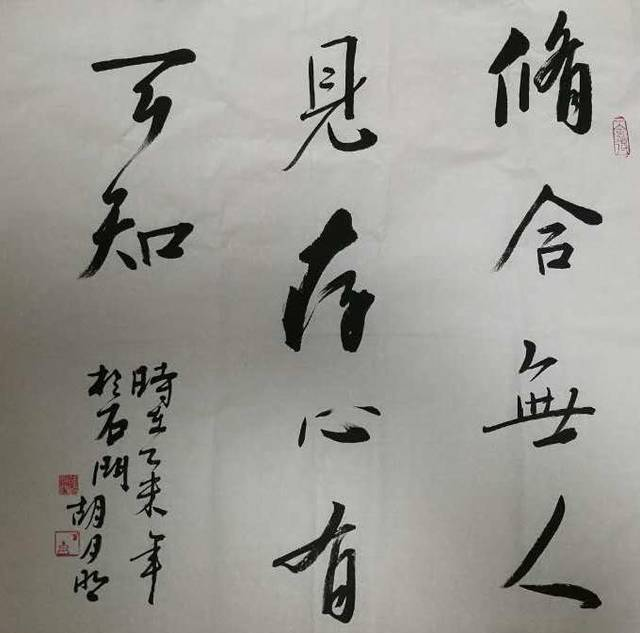 脩合無人
見存心有
天知
時在乙未年
於石門胡月明